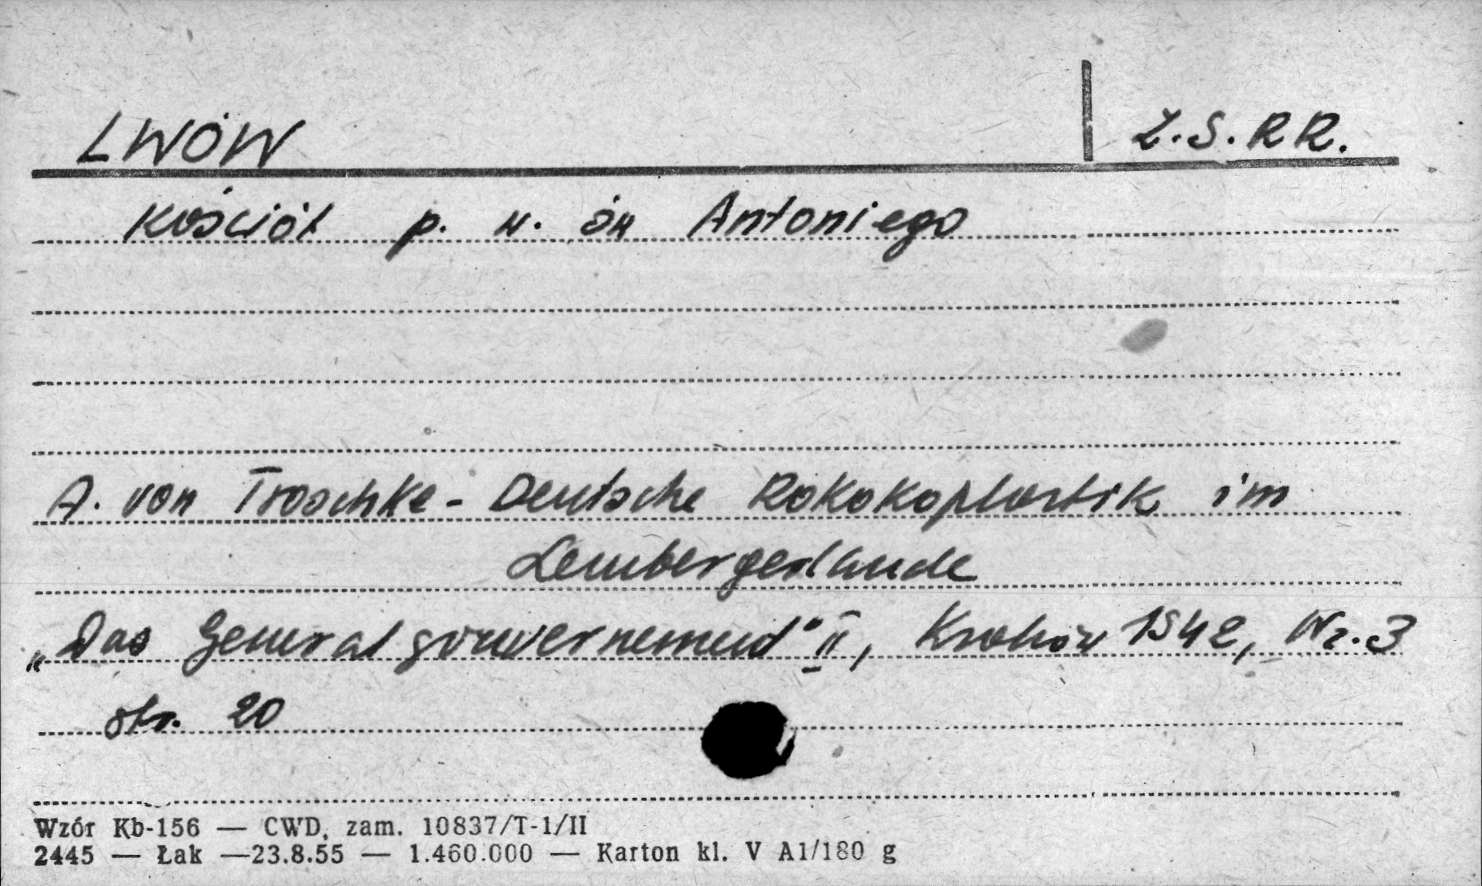 LWÓW
Z.S.RR.
Kościół p. w. św Antoniego
A. von Troschke - Deutsche Rokokoplastik im
Lembergerlande
„Das Generalgouvernement" II, Kraków 1942, Nr. 3
str. 20
Wzór Kb-156 — CWD, zam. 10837/T-1/II
2445 — Łak —23.8.55 — 1.460.000 — Karton kl. V A1/180 g